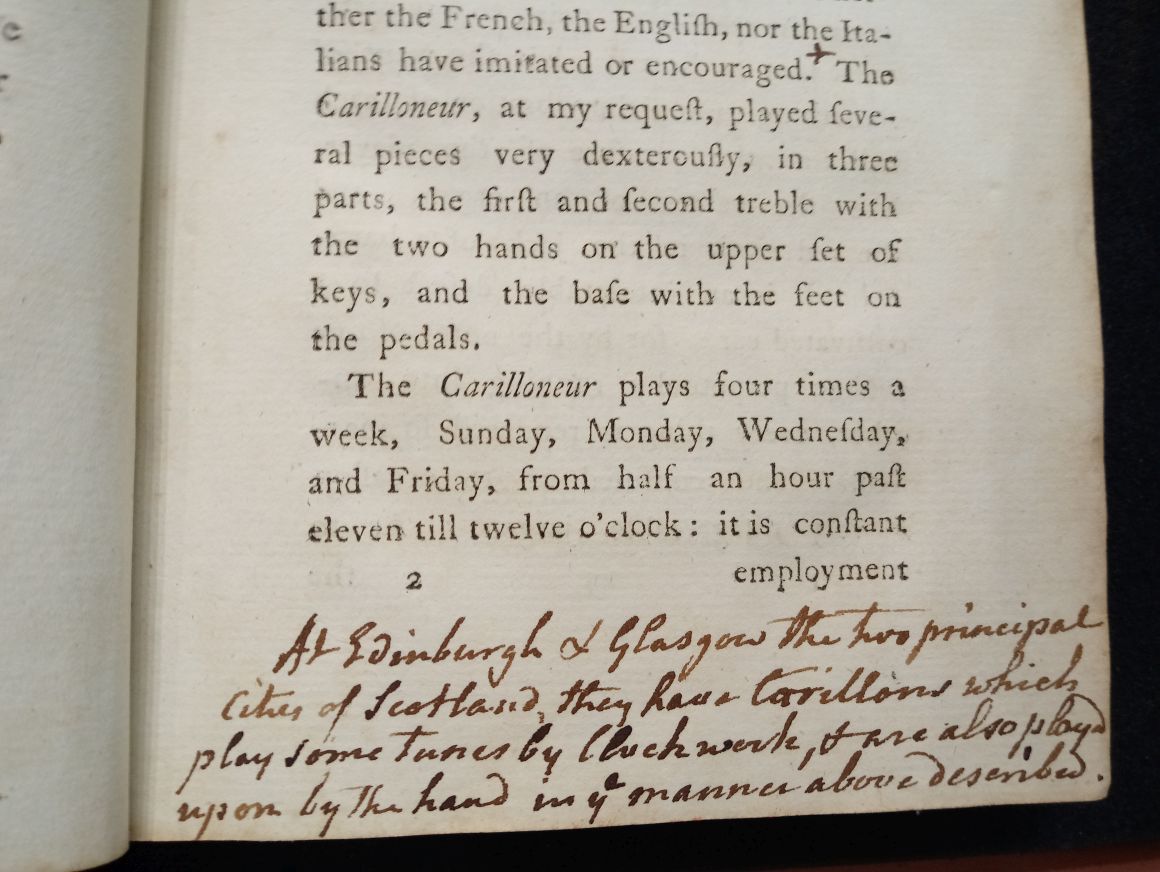 ther the French, the Engliſh, nor the Ita-
lians have imitated or encouraged.+ The
Carilloneur, at my requeſt, played ſeve-
ral pieces very dexterouſly, in three
parts, the firſt and ſecond treble with
the two hands on the upper ſet of
keys, and the baſe with the feet on
the pedals.
The Carilloneur plays four times a
week, Sunday, Monday, Wedneſday,
and Friday, from half an hour paſt
eleven till twelve o'clock: it is conſtant
2 employment
At Edinburgh & Glasgow the two principal
Cities of Scotland, they have Carillons which
play some Tunes by Clockwork, & are also play'd
upon by the hand in yᵉ manner above described.